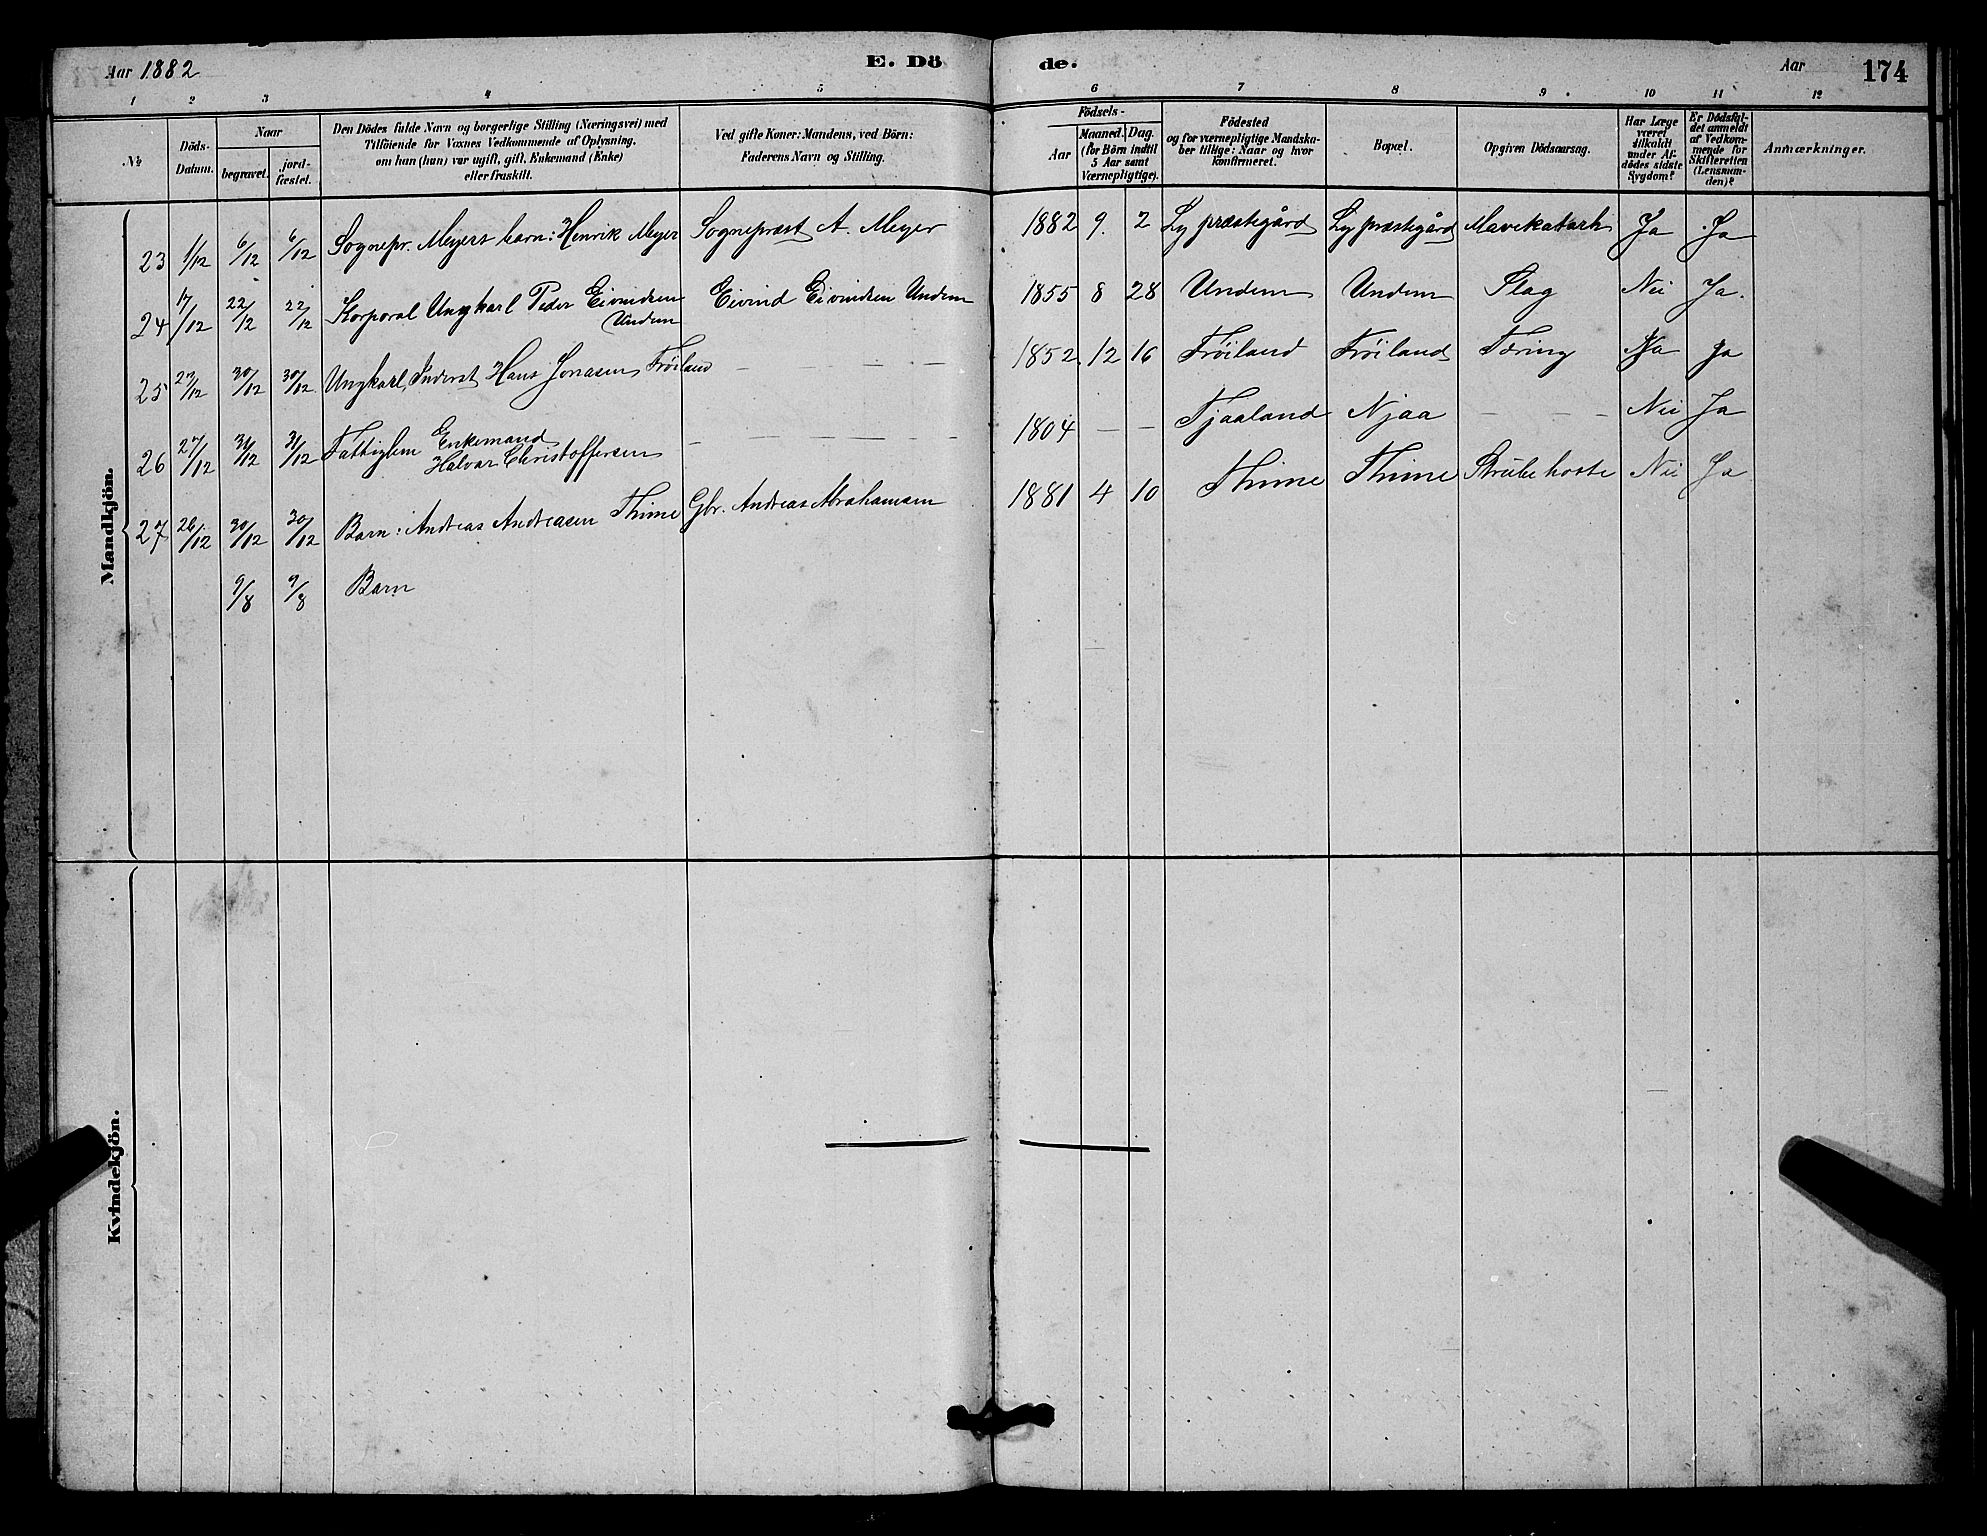 Aar 1882 E. Dö de. Aar 174
1 2 3 4 5 6 7 8 9 10 11 12
№ Döds-Datum. Naar begravet. jord-fæstet. Den Dödes fulde Navn og borgerlige Stilling (Næringsvei) med Tilföiende for Voxnes Vedkommende af Oplysning, om han (hun) var ugift, gift, Enkemand (Enke) eller fraskilt. Ved gifte Koner: Mandens, ved Börn: Faderens Navn og Stilling. Födsels- Aar Maaned. Dag. (for Börn indtil 5 Aar samt Værnepligtige). Födested og for værnepligtige Mandskaber tillige: Naar og hvor konfirmeret. Bopæl. Opgiven Dödsaarsag. Har Læge været tilkaldt under Afdödes sidste Sygdom? Er Dödsfaldet anmeldt af Vedkommende for Skifteretten (Lensmanden)? Anmærkninger.
Mandkjön.
23 1/12 6/12 6/12 Sognepr. Meyers barn: Henrik Meyer Sognepræst A. Meyer 1882 9. 2 Ly præstegård Ly præstegård Mavekatarh Ja Ja
24 17/12 22/12 22/12 Korporal Ungkarl Peder Eivindsen Undem Eivind Eivindsen Undem 1855 8 28 Undem Undem Slag Nei Ja.
25 23/12 30/12 30/12 Ungkarl, Inderst Hans Jonasen Fröiland — — — — 1852 12 16 Fröiland Fröiland Tæring Ja Ja
26 27/12 31/12 31/12 Fattiglem Enkemand Halvor Christoffersen — — — — 1804 — — Tjaaland Njaa — — — Nei Ja
27 26/12 30/12 30/12 Barn: Andreas Andreasen Thime Gbr. Andreas Abrahamsen 1881 4 10 Thime Thime Strubehoste Nei Ja
9/8 9/8 Barn
Kvindekjön.